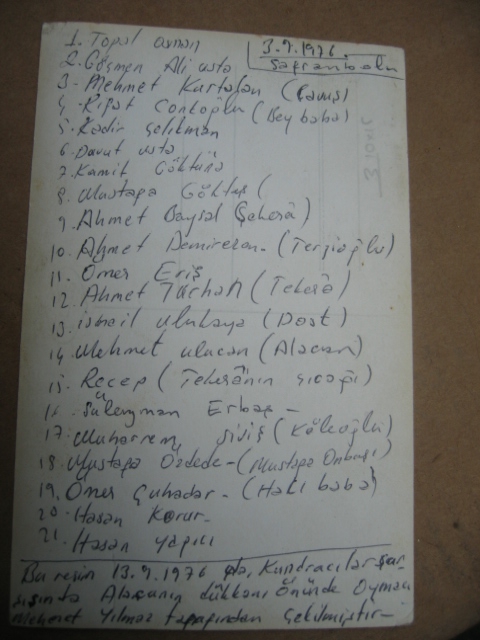 3.9.1976.
Safranbolu
1. Topal osman
2. Göçmen Ali usta
3- Mehmet Kurtalan (Çavuş)
4- Rifat Conkoğlu (Bey baba)
5. Kadir Çelikman
6. Davut usta
7. Kamil Göktürk
8. Mustafa Göktuş (
9. Ahmet Baysal Şekers)
10. Ahmet Demirezen- (Terzioğlu)
11. Ömer Eriş
12. Ahmet Turhan (Tekerâ)
13. ismail ulukaya (Dost)
14. Mehmet ulucan (Alacan)
15. Recep (Tekerâ'nın çırağı)
16. Süleyman Erbaş -
17. Muharrem Siviş (Köleoğlu)
18. Mustafa Özdede - (Mustafa Onbaşı)
19. Ömer Çuhadar - (Hakı baba)
20- Hasan Korur-
21. Hasan Yapıcı
Bu resim 13.9.1976 da, Kunduracılar çar
şısında Alaçanın dükkanı önünde Oymacı
Mehmet Yılmaz tarafından Çekilmiştir-